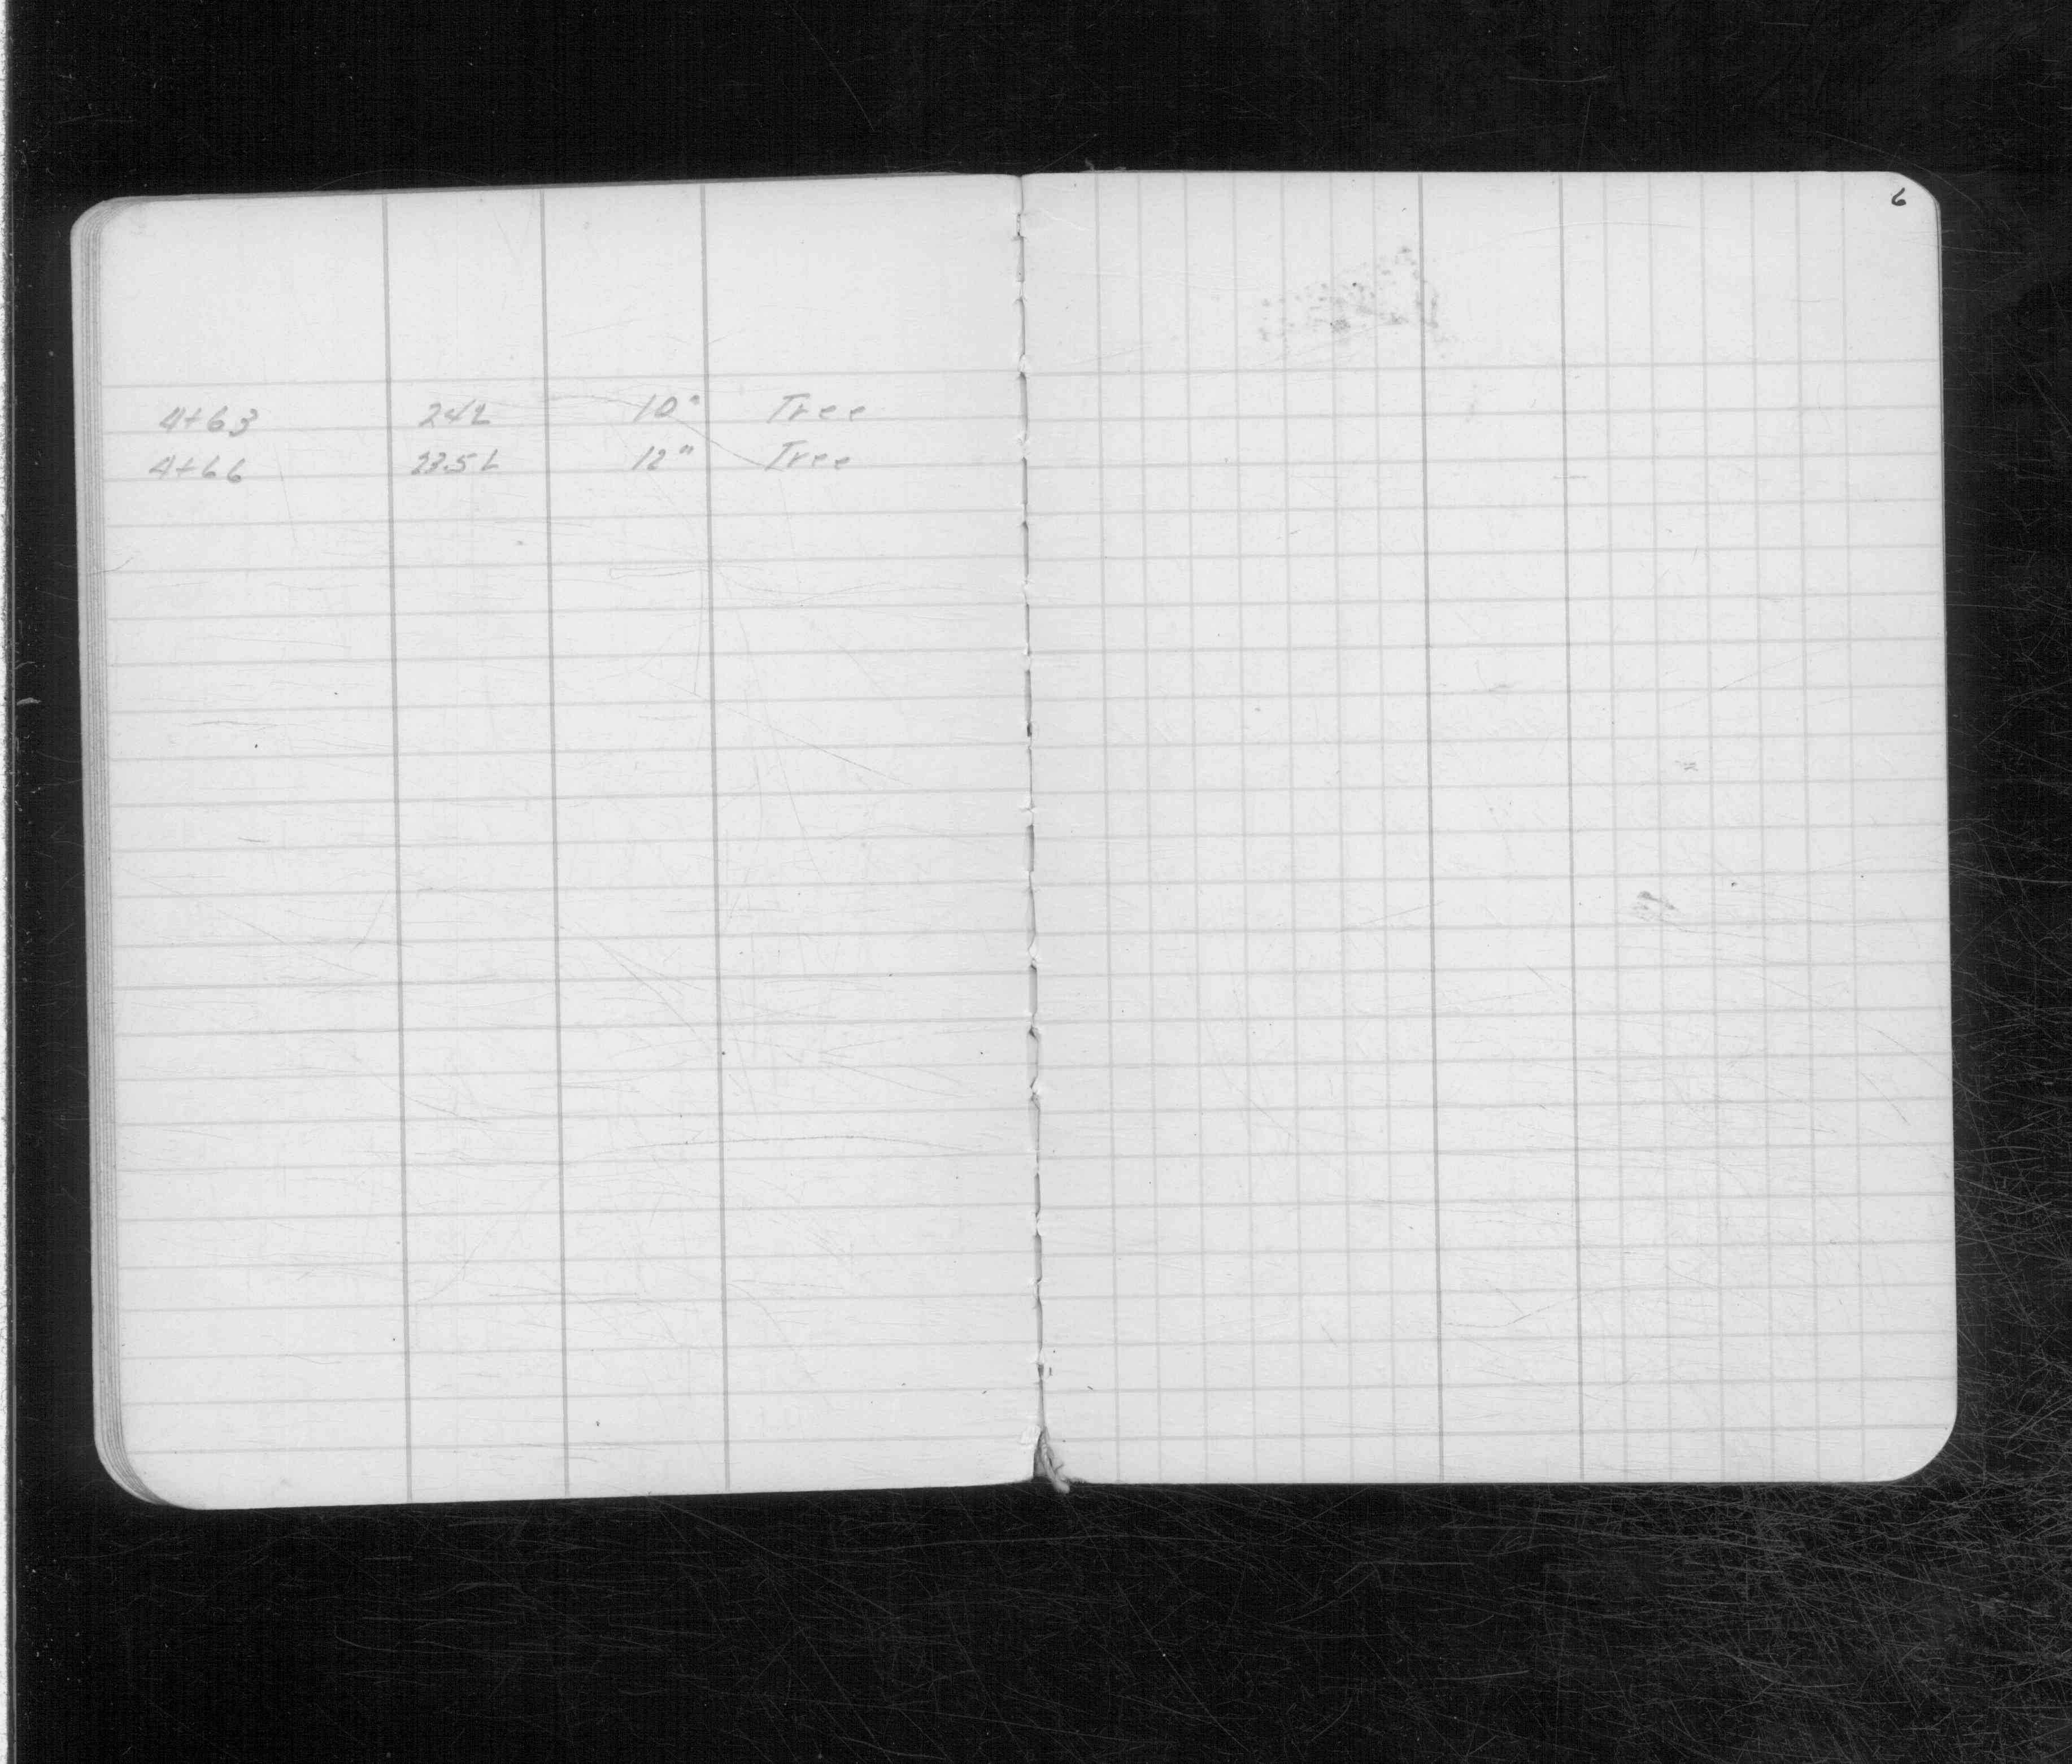 6
4+63 24L 10" Tree
4+66 23.5L 12" Tree